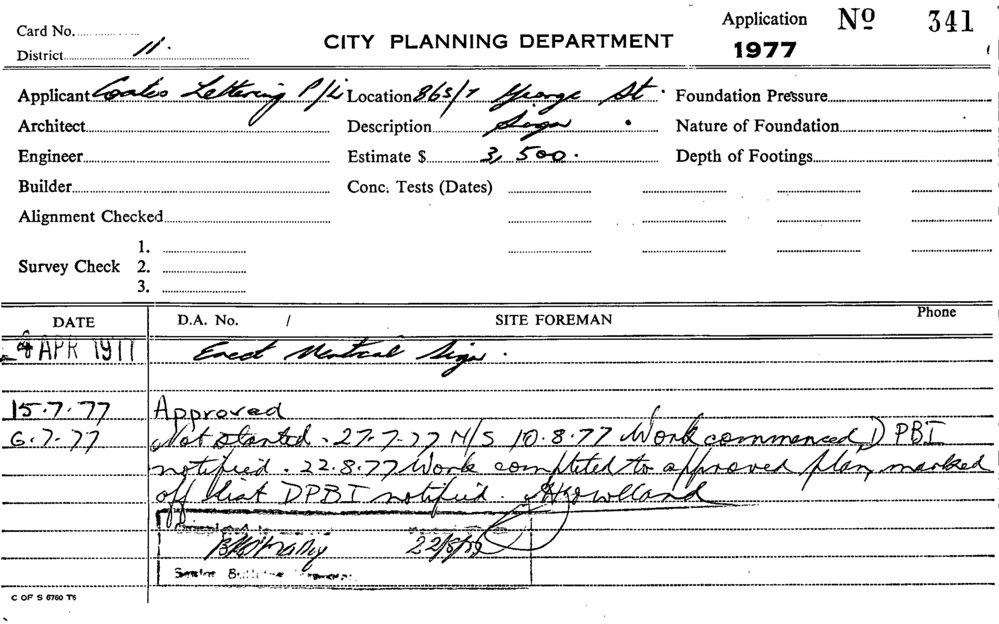 Card No. Application Nº 341
District 11. CITY PLANNING DEPARTMENT 1977
Applicant Coates Lettering P/L Location 863/7 George St. Foundation Pressure
Architect Description Sign Nature of Foundation
Engineer Estimate $ 3,500. Depth of Footings
Builder Conc. Tests (Dates)
Alignment Checked
1.
Survey Check 2.
3.
DATE D.A. No. / SITE FOREMAN Phone
APR 1977 Erect Vertical Sign.
15.7.77 Approved
6.7.77 Not started. 27-7-77 N/S 10.8.77 Work commenced, DPBI
notified. 22.8.77 Work completed to approved plan, marked
off list DPBI notified.
22/8/77
Senior Building
C OF S 6760 T5